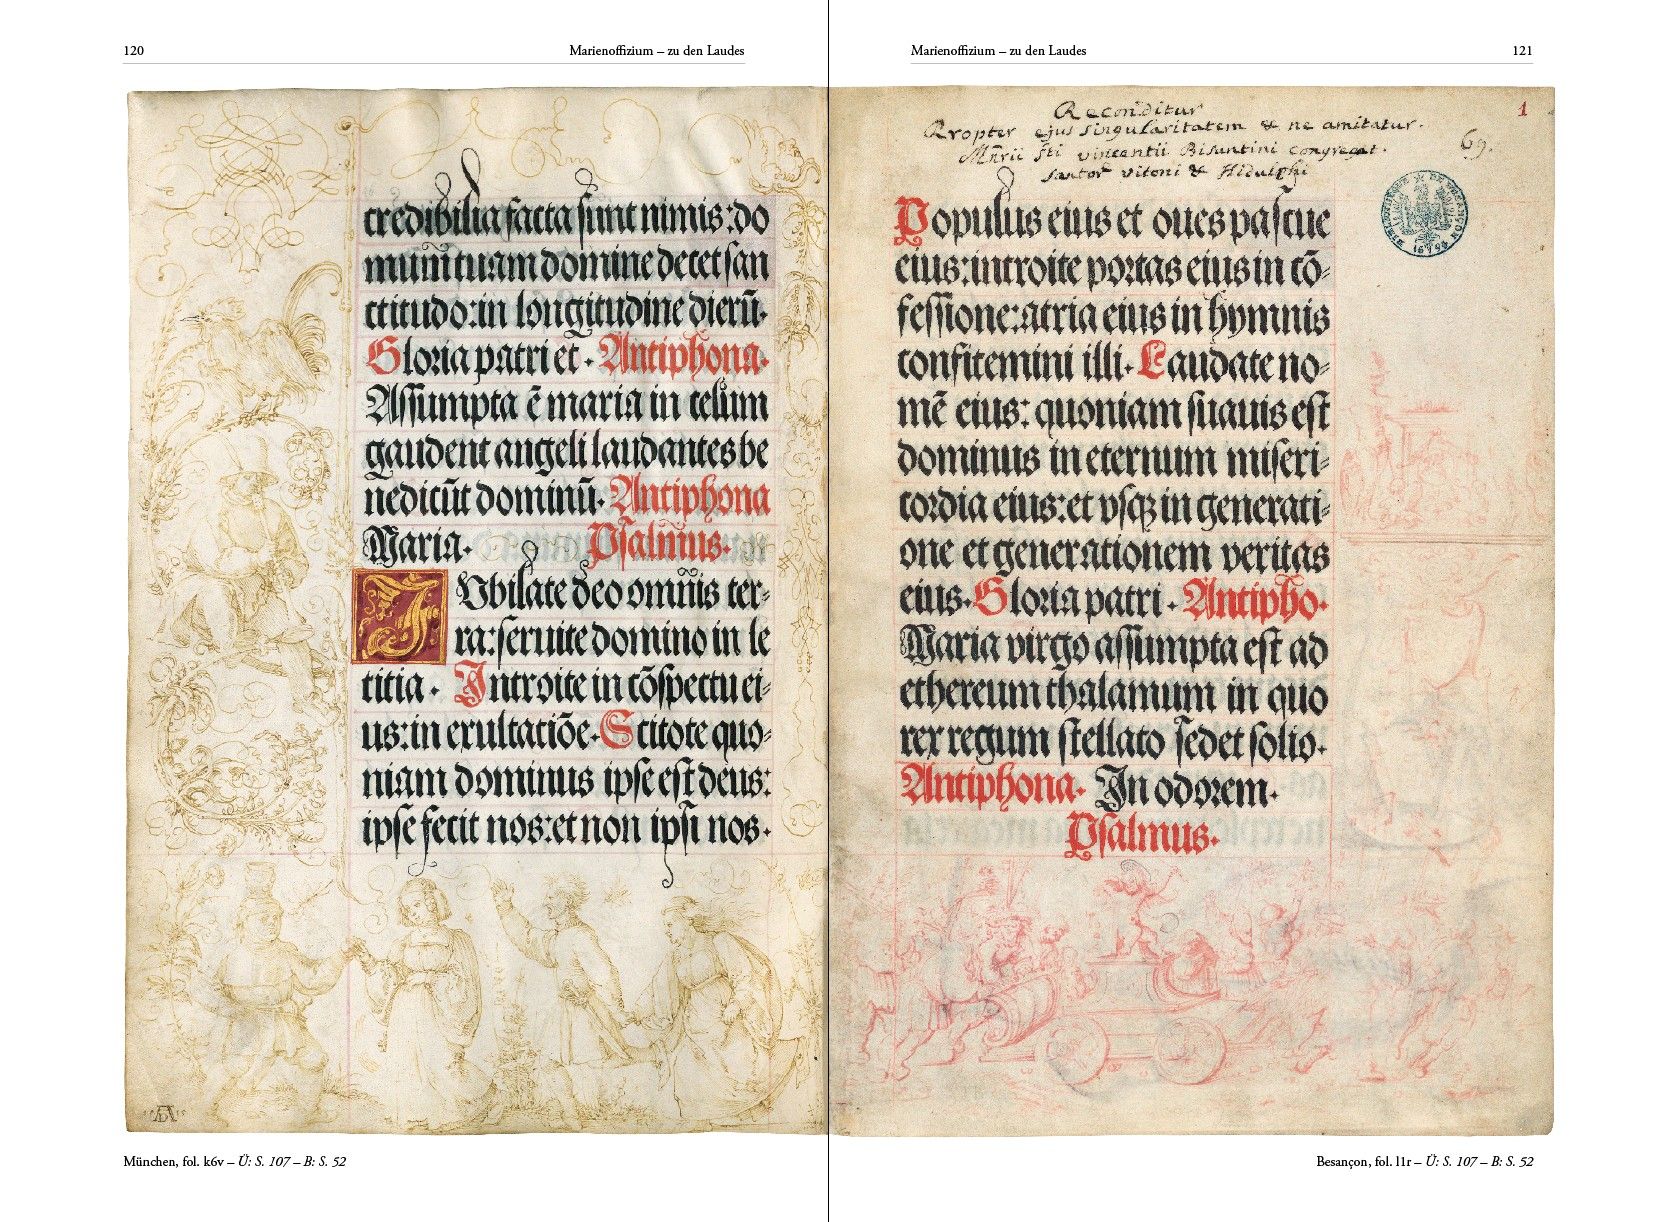 120
Marienoffizium – zu den Laudes
credibilia facta sunt nimis: do
mum tuam domine decet san
ctitudo: in longitudine dierū.
Gloria patri et. Antiphona.
Assumpta ē maria in celum
gaudent angeli laudantes be
nedicūt dominū. Antiphona
Maria. Psalmus.
IVbilate deo omnis ter-
ra: seruite domino in le
titia. Introite in cōspectu ei-
us: in exultatiōe. Scitote quo-
niam dominus ipse est deus:
ipse fecit nos: et non ipsi nos.
AD
München, fol. k6v – Ü: S. 107 – B: S. 52
Marienoffizium – zu den Laudes
121
Reconditur
Propter ejus singularitatem & ne amitatur.
Mñrii sti vincentii Bisuntini congregat.
sanctor vitoni & Hidulphi
1
69.
Populus eius et oues pascue
eius: introite portas eius in cō-
fessione: atria eius in hymnis
confitemini illi. Laudate no-
mē eius: quoniam suauis est
dominus in eternum miseri-
cordia eius: et vsqꝫ in generati-
one et generationem veritas
eius. Gloria patri. Antipho.
Maria virgo assumpta est ad
ethereum thalamum in quo
rex regum stellato sedet solio.
Antiphona. In odorem.
Psalmus.
Besançon, fol. l1r – Ü: S. 107 – B: S. 52